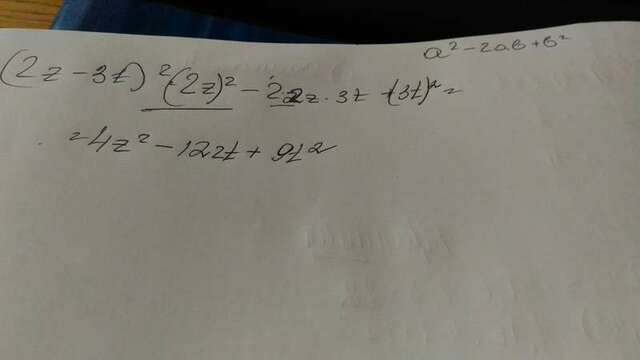 a² - 2ab + b²
(2z - 3t)² (2z)² - 2·2z·3t + (3t)² =
= 4z² - 12zt + 9t²